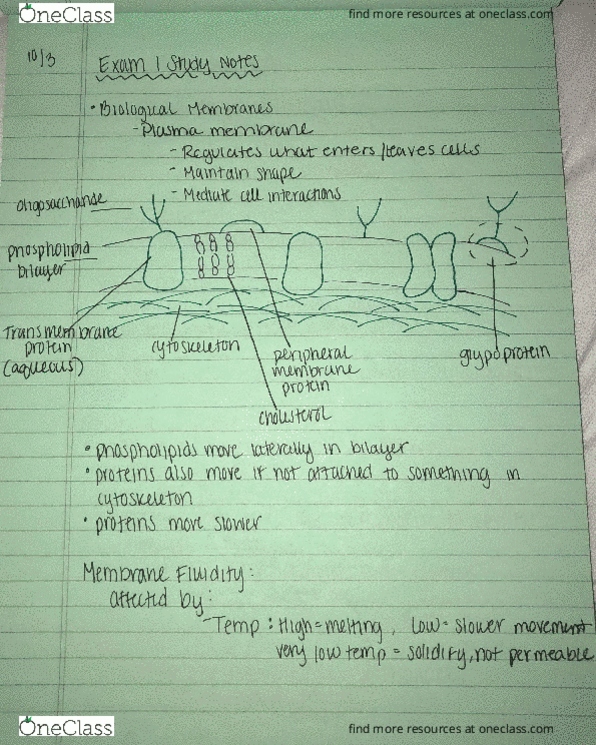 OneClass
find more resources at oneclass.com
10/3
Exam 1 Study Notes
• Biological Membranes
- Plasma membrane
- Regulates what enters/leaves cells
- Maintain shape
- Mediate cell interactions
oligosaccharide
phospholipid
bilayer
Transmembrane
protein
(aqueous)
cytoskeleton
peripheral
membrane
protein
glypoprotein
cholesterol
• phospholipids move laterally in bilayer
• proteins also move if not attached to something in
cytoskeleton
• proteins move slower
Membrane Fluidity:
affected by:
- Temp: High = melting, Low = slower movement
very low temp = solidify, not permeable
OneClass
find more resources at oneclass.com